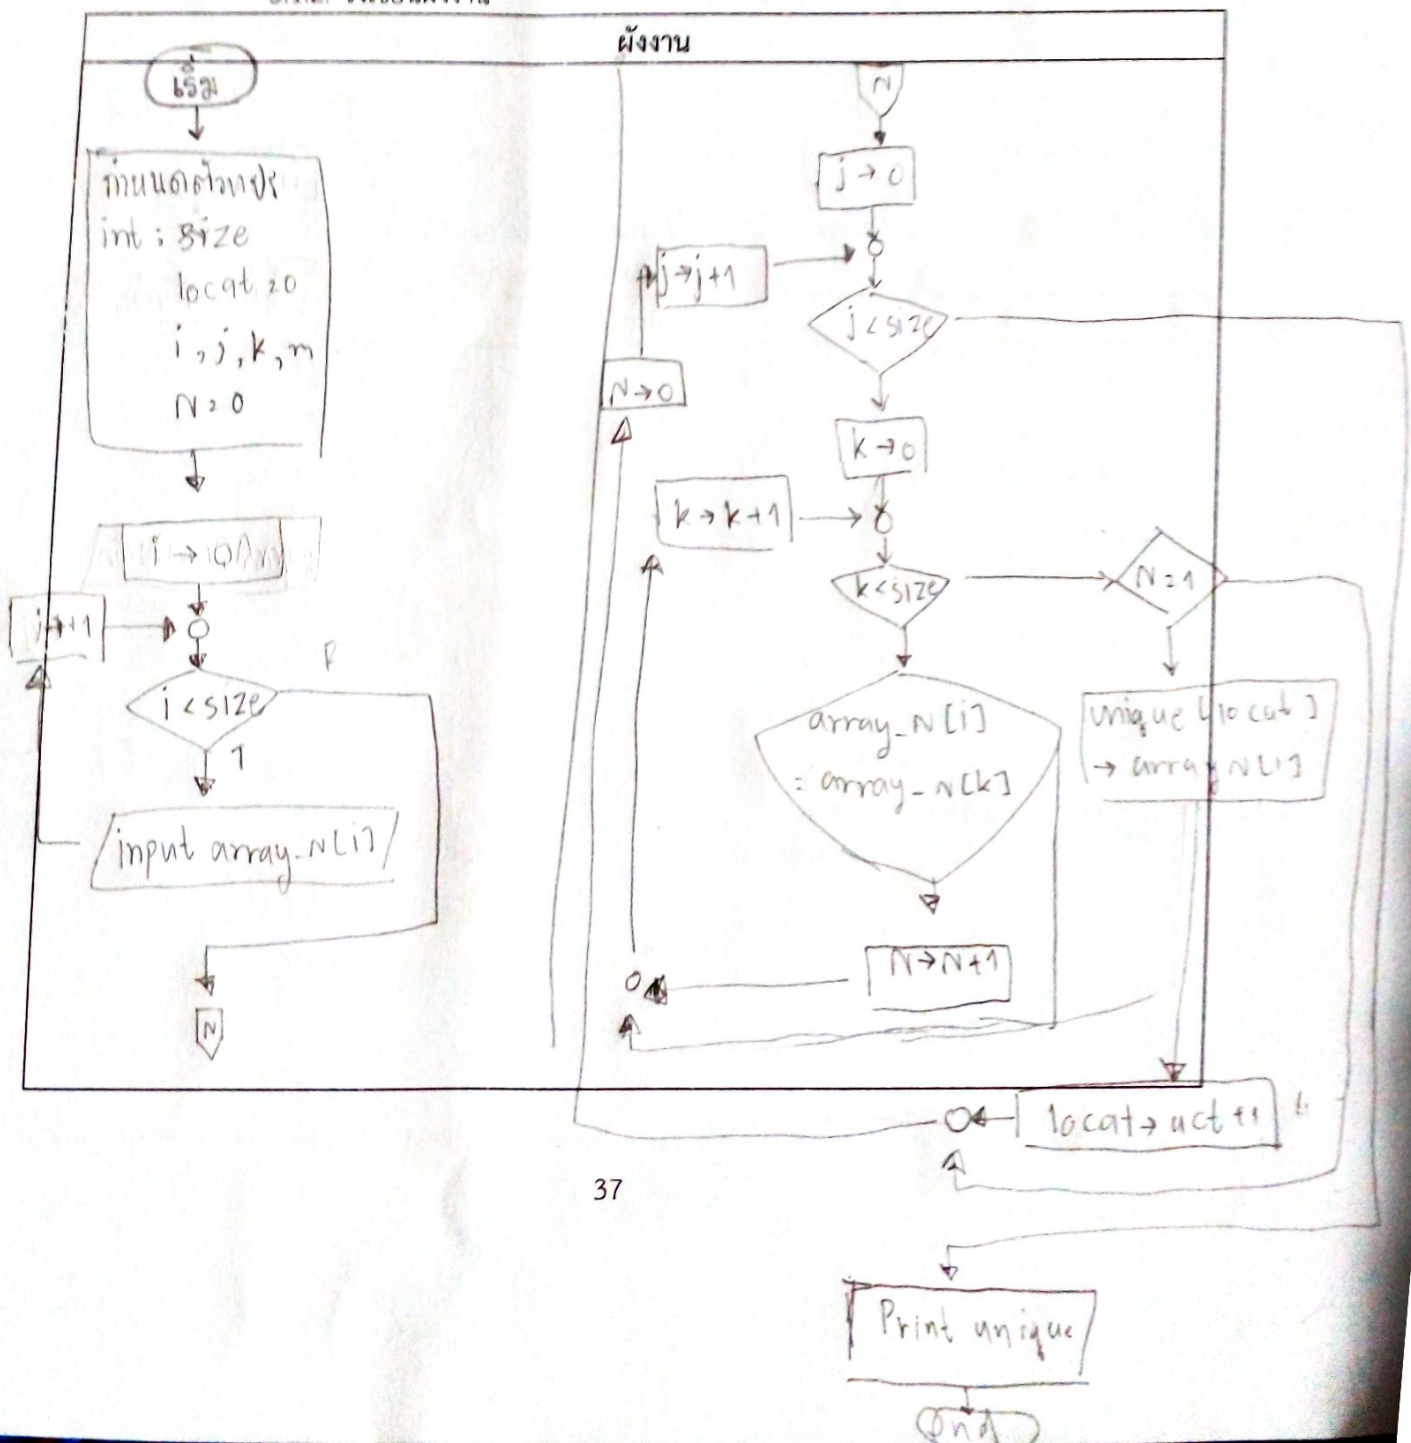 ผังงาน
เริ่ม
กำหนดตัวแปร
int : size
locat = 0
i, j, k, m
N = 0
i → 0
i → +1
i < size
F
T
input array_N[i]
N
N
j → 0
j → j+1
j < size
N → 0
k → 0
k → k+1
k < size
N = 1
array_N[i]
= array_N[k]
unique [locat]
→ array N[i]
N → N+1
locat → act +1
37
Print unique
End